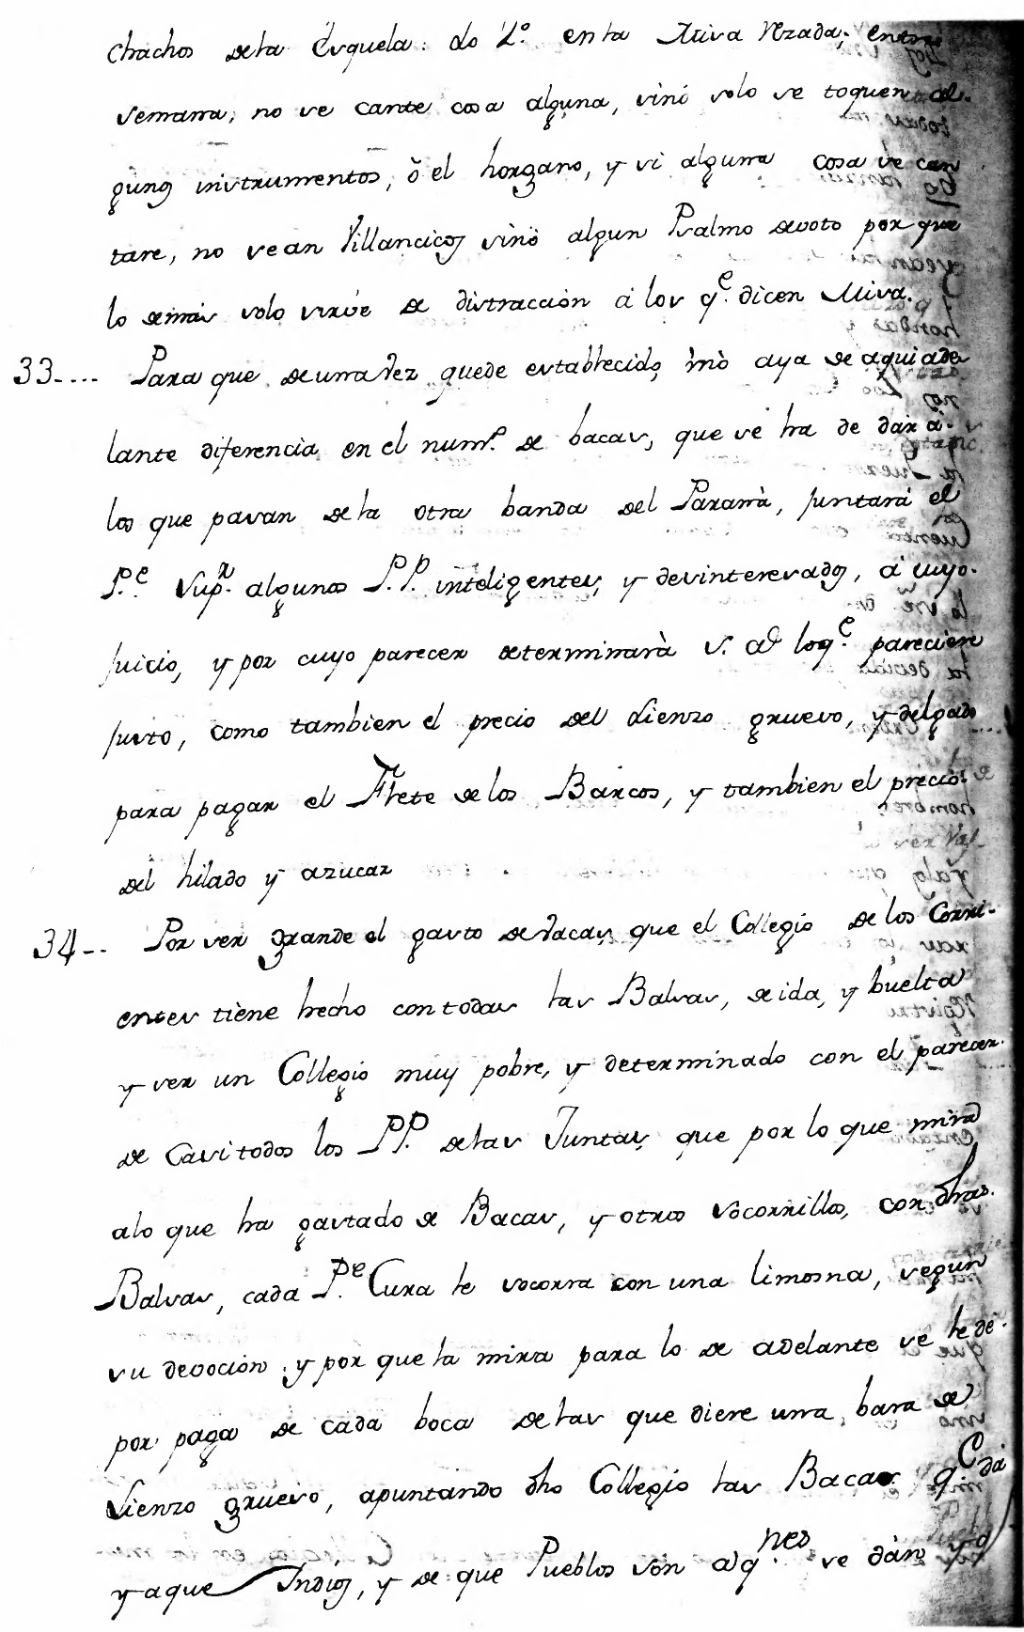 chachos de la Esquela: Lo 2º. en la Missa Rezada, entre
semana, no se cante cosa alguna, sinó solo se toquen al-
gunos instrumentos, ò el horgano, y si alguna cosa se can
tare, no sean Villancicos sinò algun Psalmo devoto por que
lo demàs solo sirve de distracción à los q.e dicen Missa.
33.... Para que de una vez quede establecido, i no aya de aqui ade
lante diferencia en el num.o de bacas, que se ha de dar à
los que pasan de la otra banda del Paranà, juntará el
P.e Sup.r algunos P.P. inteligentes, y desinteresados, à cuyo
juicio, y por cuyo parecer determinarà S. R. lo q.e pareciere
justo, como tambien el precio del Lienzo grueso, y delgado
para pagar el Flete de los Barcos, y tambien el precio
del hilado y azucar
34-- Por ser grande el gasto de Vacas que el Collegio de los Corri-
entes tiene hecho con todas las Balsas, de ida, y buelta
y ser un Collegio muy pobre, y determinado con el parecer
de casi todos los PP. de las Juntas, que por lo que mira
alo que ha gastado de Bacas, y otros socorrillos, con dhas.
Balsas, cada P.e Cura le socorra con una limosna, segun
su devoción, y por que la mira para lo de adelante se le dé
por paga de cada boca de las que diere una bara de
Lienzo grueso, apuntando dho Collegio las Bacas q.e dá
y a que Indios, y de que Pueblos són a q.nes se dán